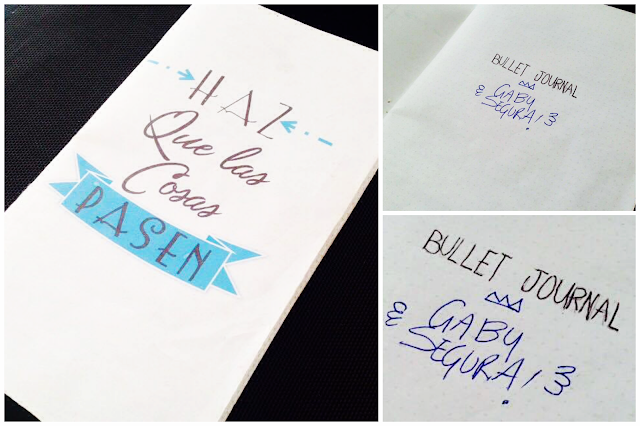 HAZ
Que las
Cosas
PASEN
BULLET JOURNAL
GABY
SEGURA!
BULLET JOURNAL
GABY
SEGURA!